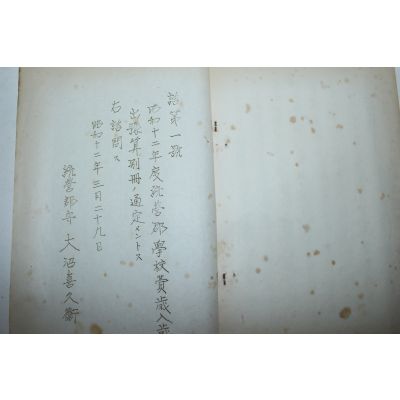 諮第一號
昭和十二年度統營郡學校費歲入歲
出豫算別冊ノ通定メントス
右諮問ス
昭和十二年三月二十九日
統營郡守 大沼喜久衞